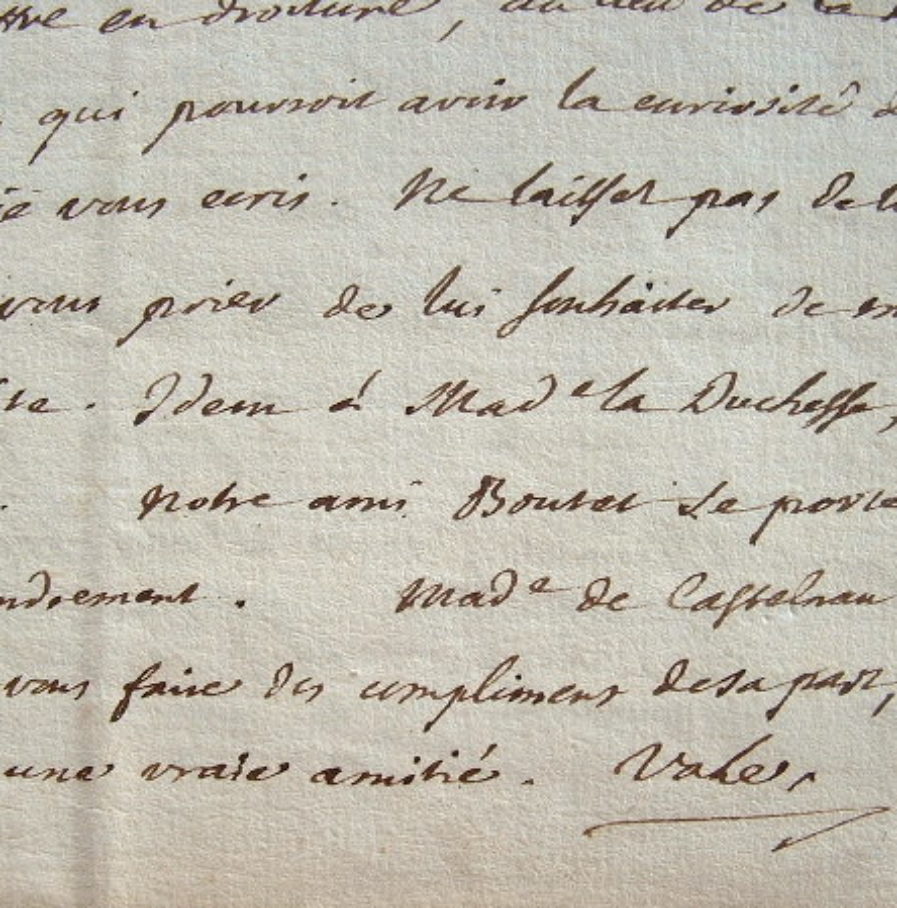 en droiture, au lieu de la
qui pourroit avoir la curiosité
vous ecris. Ne laisser pas de
vous prier de lui souhaiter de
Idem à Mad e la Duchesse,
Notre ami Boutet se porte
Mad e de Castelnau
vous faire des compliments de sa part,
une vraie amitié. Vale,